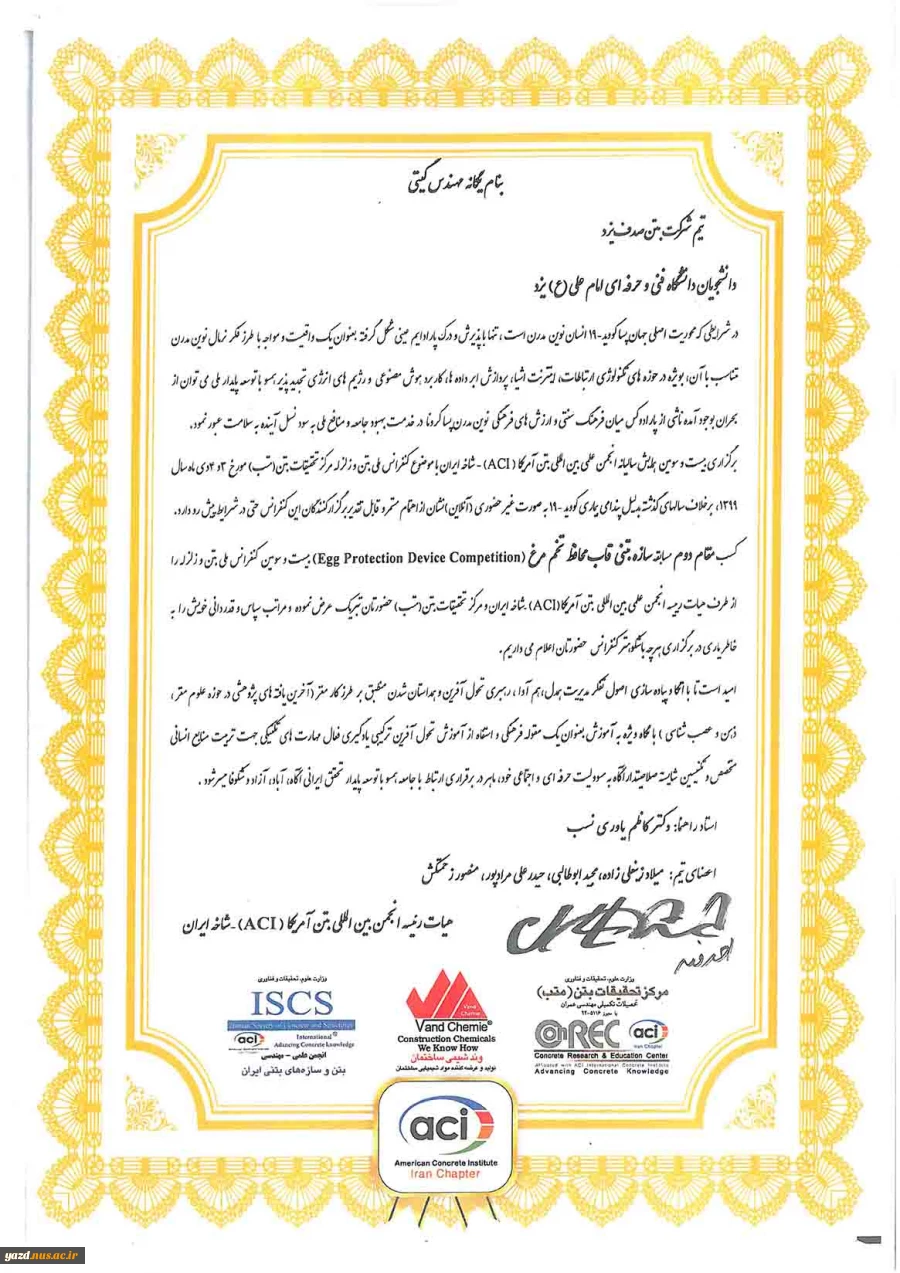 بنام یگانه مهندس گیتی
تیم شرکت بتن صدف یزد
دانشجویان دانشگاه فنی و حرفه ای امام علی (ع) یزد
در شرایطی که محوریت اصلی جهان پسا کووید-۱۹ انسان نوین مدرن است، تنها با پذیرش و درک پارادایم عینی شکل گرفته بعنوان یک واقعیت و مواجه با طرز فکر نرمال نوین مدرن
متناسب با آن، بویژه در حوزه های تکنولوژی ارتباطات، اینترنت اشیا، پردازش ابر داده ها، کاربرد هوش مصنوعی و رژیم های انرژی تجدید پذیر همسو با توسعه پایدار ملی می توان از
بحران بوجود آمده ناشی از پارادوکس میان فرهنگ سنتی و ارزش های فرهنگی نوین مدرن پسا کرونا در خدمت بهبود جامعه و منافع ملی به سود نسل آینده به سلامت عبور نمود.
برگزاری بیست و سومین همایش سالیانه انجمن علمی بین المللی بتن آمریکا (ACI) - شاخه ایران با موضوع کنفرانس ملی بتن و زلزله مرکز تحقیقات بتن (متب) مورخ ۳و ۴ دی ماه سال
۱۳۹۹، برخلاف سالهای گذشته بدلیل پندامی بیماری کووید-۱۹ به صورت غیر حضوری (آنلاین) نشان از اهتمام مستمر و قابل تقدیر برگزار کنندگان این کنفرانس حتی در شرایط پیش رو دارد.
کسب مقام دوم مسابقه سازه بتنی قاب محافظ تخم مرغ (Egg Protection Device Competition) بیست و سومین کنفرانس ملی بتن و زلزله را
از طرف هیات رییسه انجمن علمی بین المللی بتن آمریکا (ACI) ـ شاخه ایران و مرکز تحقیقات بتن (متب) حضورتان تبریک عرض نموده و مراتب سپاس و قدردانی خویش را به
خاطر یاری در برگزاری هرچه باشکوهتر کنفرانس حضورتان اعلام می داریم.
امید است تا با اتکا و پیاده سازی اصول تفکر مدیریت همدل، هم آوا، رهبری تحول آفرین و همداستان شدن منطبق بر طرز کار مغز (آخرین یافته های پژوهشی در حوزه علوم مغز،
ذهن و عصب شناسی) با نگاه ویژه به آموزش بعنوان یک مقوله فرهنگی و استفاده از آموزش تحول آفرین ترکیبی یادگیری فعال مهارت های تکنیکی جهت تربیت منابع انسانی
متخصص و تکنیسین شایسته صلاحیتدار آگاه به مسوولیت حرفه ای و اجتماعی خود، ماهر در برقراری ارتباط با جامعه همسو با توسعه پایدار تحقق ایرانی آگاه، آباد، آزاد و شکوفا میسر شود.
استاد راهنما: دکتر کاظم یاوری نسب
اعضای تیم: میلاد زینعلی زاده، مجید ابوطالبی، حیدر علی مرادپور، منصور زحمتکش
هیات رئیسه انجمن بین المللی بتن آمریکا (ACI) - شاخه ایران
وزارت علوم، تحقیقات و فناوری
ISCS
Iranian Society of Concrete and Structures
aci International
Advancing Concrete knowledge
انجمن علمی - مهندسی
بتن و سازه‌های بتنی ایران
Vand Chemie
Vand Chemie®
Construction Chemicals
We Know How
وند شیمی ساختمان
تولید و عرضه کننده مواد شیمیایی ساختمان
وزارت علوم، تحقیقات و فناوری
مرکز تحقیقات بتن (متب)
تحصیلات تکمیلی مهندسی عمران
ConREC aci
Iran Chapter
Concrete Research & Education Center
Affiliated with ACI International Concrete Institute
Advancing Concrete Knowledge
aci
American Concrete Institute
Iran Chapter
yazd.nus.ac.ir